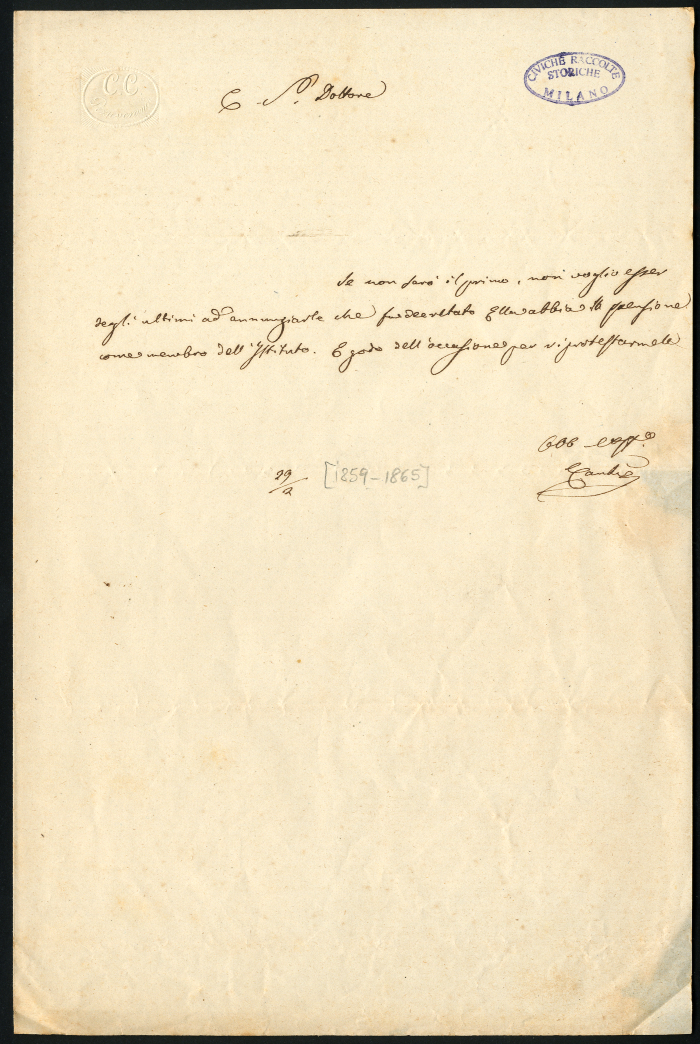 C. C.
CIVICHE RACCOLTE
STORICHE
MILANO
C. Sr. Dottore
Se non sarò il primo, non voglio esser
degli ultimi ad annunziarle che fu decretato Ella abbia la pensione
come membro dell'Istituto. E godo dell'occasione per riprotestarmele
Obb
Cantù
29/2 [1859-1865]